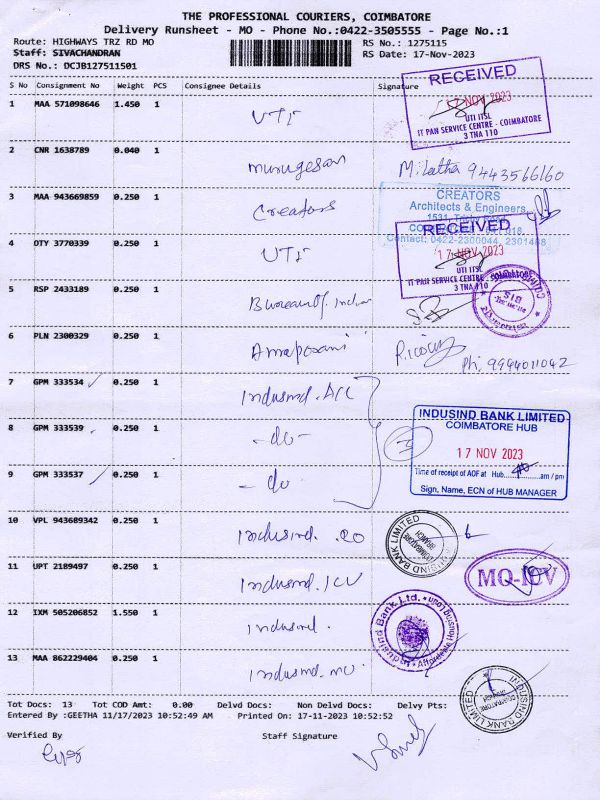 THE PROFESSIONAL COURIERS, COIMBATORE
Delivery Runsheet - MO - Phone No.:0422-3505555 - Page No.:1
Route: HIGHWAYS TRZ RD MO
RS No.: 1275115
Staff: SIVACHANDRAN
RS Date: 17-Nov-2023
DRS No.: DCJB127511501
S No Consignment No Weight PCS Consignee Details Signature
RECEIVED
17 NOV 2023
UTI ITSL
IT PAN SERVICE CENTRE - COIMBATORE
3 TNA 110
1 MAA 571098646 1.450 1 UTI
2 CNR 1638789 0.040 1 murugesan M. Latha 9443566160
3 MAA 943669859 0.250 1 Creators
CREATORS
Architects & Engineers
Contact: 0422-2300044, 2301468
4 OTY 3770339 0.250 1 UTI
RECEIVED
17 NOV 2023
UTI ITSL
IT PAN SERVICE CENTRE - COIMBATORE
3 TNA 110
5 RSP 2433189 0.250 1 Bureau Of. India
BIS
6 PLN 2300329 0.250 1
Ph: 9994011042
7 GPM 333534 0.250 1 Indusind.
8 GPM 333539 0.250 1 - do -
9 GPM 333537 0.250 1 - do
3
INDUSIND BANK LIMITED
COIMBATORE HUB
17 NOV 2023
Time of receipt of AOF at Hub am / pm
Sign, Name, ECN of HUB MANAGER
10 VPL 943689342 0.250 1 Indusind.
INDUSIND BANK LIMITED
COIMBATORE
BRANCH
11 UPT 2189497 0.250 1 Indusind.
12 IXM 505206852 1.550 1 Indusind.
IndusInd Bank Ltd. * Affordable Housing Loan
13 MAA 862229404 0.250 1 Indusind.
INDUSIND BANK LIMITED
COIMBATORE
Tot Docs: 13 Tot COD Amt: 0.00 Delvd Docs: Non Delvd Docs: Delvy Pts:
Entered By :GEETHA 11/17/2023 10:52:49 AM Printed On: 17-11-2023 10:52:52
Verified By
Staff Signature